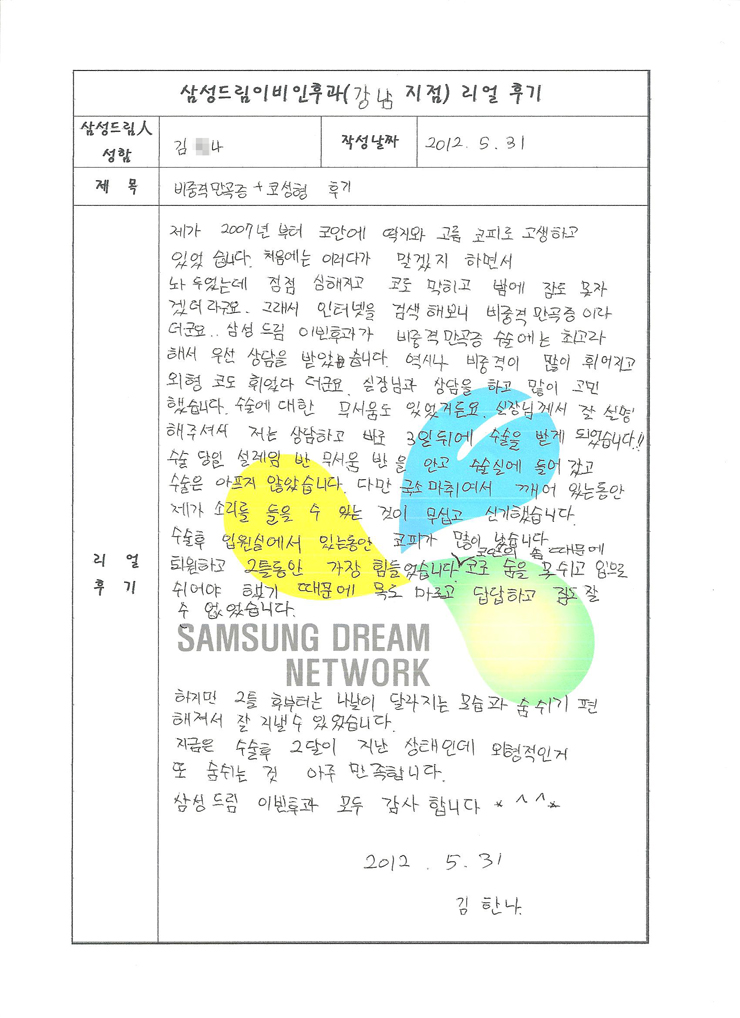 삼성드림이비인후과(강남 지점) 리얼 후기
삼성드림人
성함
김 나
작성날짜
2012. 5. 31
제 목
비중격만곡증 + 코성형 후기
리 얼
후 기
제가 2007년 부터 코안에 딱지와 고름 코피로 고생하고
있었 습니다. 처음에는 이러다가 말겠지 하면서
놔 두었는데 점점 심해지고 코도 막히고 밤에 잠도 못자
겠더라구요. 그래서 인터넷을 검색 해보니 비중격 만곡증 이라
더군요.. 삼성 드림 이빈후과가 비중격만곡증 수술에는 최고라
해서 우선 상담을 받았습니다. 역시나 비중격이 많이 휘어지고
외형 코도 휘었다 더군요. 실장님과 상담을 하고 많이 고민
했습니다. 수술에 대한 무서움도 있었거든요. 실장님께서 잘 설명
해주셔서 저는 상담하고 바로 3일뒤에 수술을 받게 되었습니다!!
수술 당일 설레임 반 무서움 반 을 안고 수술실에 들어 갔고
수술은 아프지 않았습니다. 다만 국소마취여서 깨어 있는동안
제가 소리를 들을 수 있는 것이 무섭고 신기했습니다.
수술후 입원실에서 있는동안 코피가 많이 났습니다.
퇴원하고 2틀동안 가장 힘들었습니다. 코안의 솜 때문에 코로 숨을 못쉬고 입으로
쉬어야 했기 때문에 목도 마르고 답답하고 잠도 잘
수 없었습니다.
SAMSUNG DREAM
NETWORK
하지만 2틀 후부터는 나날이 달라지는 모습과 숨쉬기 편
해져서 잘 지낼수 있었습니다.
지금은 수술후 2달이 지난 상태인데 외형적인거
또 숨쉬는 것 아주 만족합니다.
삼성드림 이빈후과 모두 감사 합니다 * ^^*
2012 . 5. 31
김 한나